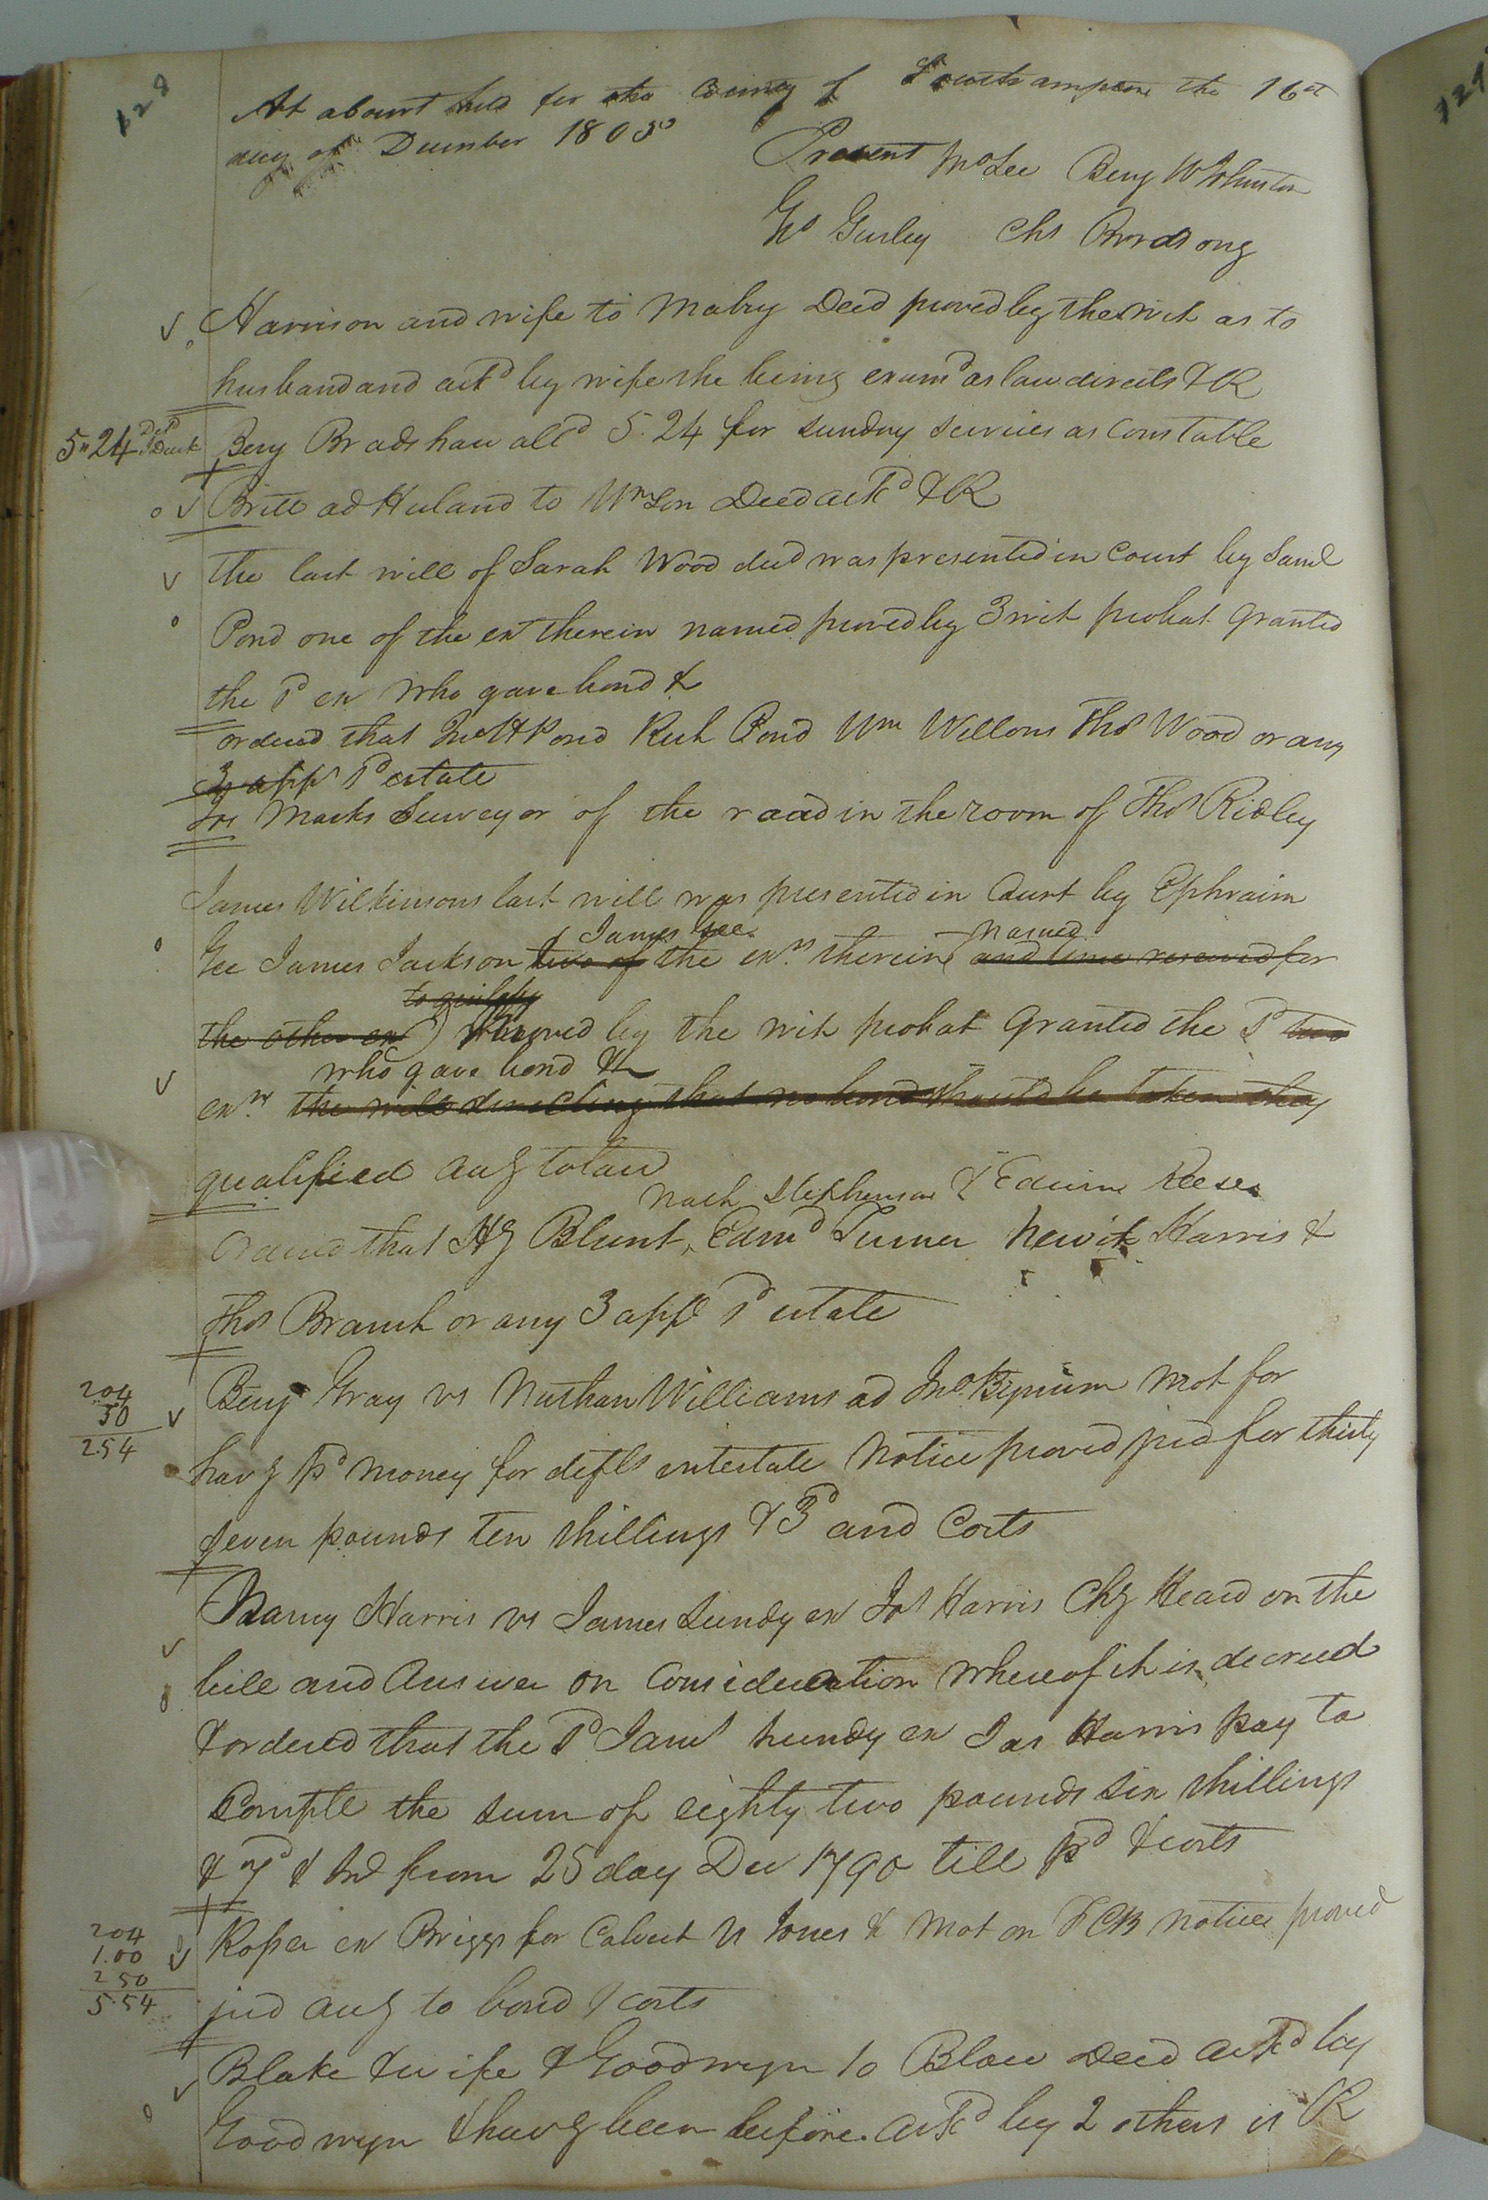 128
At a Court held for the County of Southampton the 16th
day of December 1805
Present Mr Lee Benj W Johnston
Gs Gurley Chs Birdsong
Harrison and wife to Mabry Deed proved by the wit as to
husband and ackd by wife she being examd as law directs & OR
5"24
Benj Bradshaw alld 5.24 for sundry services as Constable
Britt ad to Deed ackd & OR
The last will of Sarah Wood decd was presented in Court by Saml
Pond one of the ex therein named proved by 3 wit probat Granted
the sd ex who gave bond &
ordered that Jno H Pond Rich Pond Wm Wellons Thos Wood or any
3 appr sd estate
Jos Marks Surveyor of the road in the room of Thos Ridley
James Wilkinsons last will was presented in Court by Ephraim
James Gee named
Gee James Jackson two of the exrs therein and time reserved for
to qualify
the other ex proved by the wit probat Granted the sd two
who gave bond &
exrs the will directing that no bond should be taken they
qualified accg to law
Nath Stephenson & Edwin Reese
Ordered that Hy Blunt, Edmd Turner Newit Harris &
Thos Branch or any 3 appr sd estate
204
50
254
Benj Gray vs Nathan Williams ad Jno Bynum Mot for
havg pd money for defts intestate Notice proved jud for thirty
seven pounds ten shillings & 3d and Costs
Nancy Harris vs James Lundy ex Jos Harris Chy Heard on the
bill and Answer on Consideration whereof it is decreed
& ordered that the sd Jams Lundy ex Jas Harris pay to
Complt the sum of eighty two pounds six shillings
& 7d & Int from 25 day Dec 1790 till pd & costs
204
1.00
2 50
5.54
Roper ex Briggs for Calvert vs Jones & Mot on notice proved
jud accg to bond & costs
Blake & wife & Goodwyn to Blow Deed ackd by
Goodwyn & havg been before ackd by 2 others is OR
129